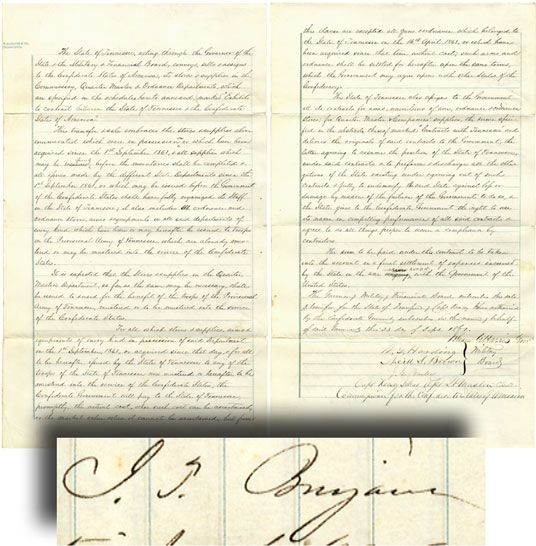 The State of Tennessee, acting through the Governor of the
State & the Military & Financial Board, conveys sells & assigns
to the Confederate States of America, its stores & supplies in the
Commissary, Quarter Master & Ordnance Departments which
are specified in the schedules hereto annexed, marked Exhibits
to contract between the State of Tennessee & the Confederate
States of America.
This transfer & sale embraces the stores & supplies above
enumerated which were in possession or which have been
acquired since the 1st September 1861, & all supplies which
may be received before the inventories shall be completed &
all issues made by the different State Departments since the
1st September 1861, or which may be issued before the Government
of the Confederate States shall have fully organized its Staff
in the State of Tennessee; it also includes all ordnance and
ordnance stores, arms & equipments in all said departments of
every kind which have been or may hereafter be issued to troops
in the Provisional Army of Tennessee, which are already mus-
tered or may be mustered into the service of the Confederate
States.
It is expected that the stores & supplies in the Quarter
Masters Department, so far as the same may be necessary, shall
be issued & used for the benefit of the troops of the Provisional
Army of Tennessee, mustered or to be mustered into the service
of the Confederate States.
For all which stores & supplies, arms &
equipments of every kind in possession of said department
on the 1st September 1861, or acquired since that day, & for all
to be hereafter issued by the State of Tennessee to any of the
troops of the State of Tennessee now mustered or hereafter to be
mustered into the service of the Confederate States, the
Confederate Government will pay to the State of Tennessee,
promptly, the actual cost, when such cost can be ascertained,
or the market value when it cannot be ascertained, but from
this clause are excepted all guns & ordnance, which belonged to
the State of Tennessee on the 16th April 1861, or which have
been acquired since that time, without cost; such arms and
ordnance shall be settled for hereafter upon the same terms,
which the Government may agree upon with other States of the
Confederacy.
The State of Tennessee also assigns to the Government
all its contracts for arms, munitions of war, ordnance & ordnance
stores, for Quarter Master & Companies supplies, the same speci-
fied in the abstracts thereof, marked Contracts with Tennessee and
delivers the originals of said contracts to the Government, the
latter agreeing to assume the position of the State of Tennessee
under said contracts & to perform & discharge all the obli-
gations of the State existing under or growing out of such
contracts & fully to indemnify the said State against loss or
damage by reason of the failure of the Government to do so, &
the State gives to the Confederate Government the right to use
its name in compelling performances of all said contracts &
agrees to do all things proper to insure a compliance by
contractors.
The sum to be paid under this contract to be taken
into the account in a final settlement of expenses assumed
by the State in the war with the Government of the
United States.
of said Government this 23 day of Sept. 1861.
W. G. Harding
Military
Board
J. P. Benjamin